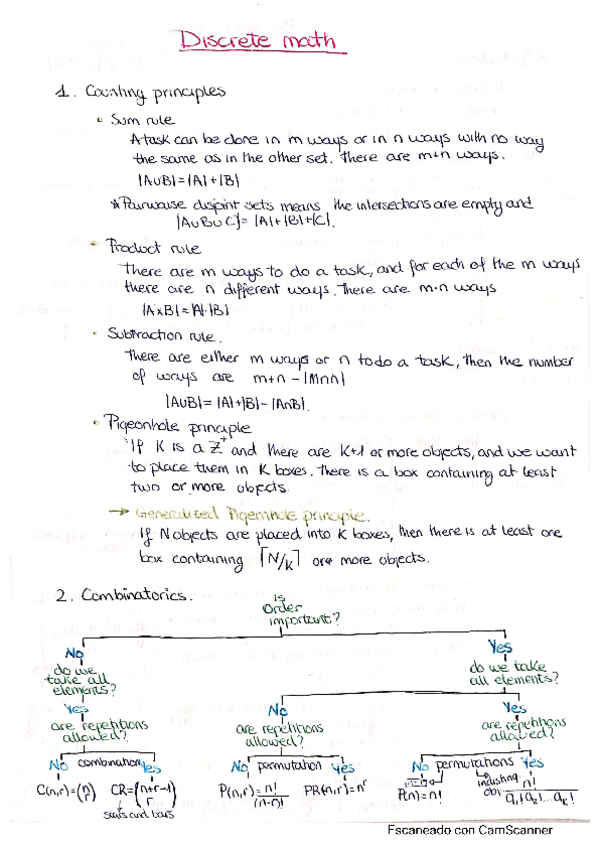 Discrete math
1. Counting principles
• Sum rule
A task can be done in m ways or in n ways with no way
the same as in the other set. There are m+n ways.
|A∪B|=|A|+|B|
* Pairwaise disjoint sets means the intersections are empty and
|A∪B∪C|= |A|+|B|+|C|.
• Product rule
There are m ways to do a task, and for each of the m ways
there are n different ways. There are m·n ways
|A×B|=|A|·|B|
• Subtraction rule.
There are either m ways or n to do a task, then the number
of ways are m+n-|m∩n|
|A∪B|= |A|+|B|-|A∩B|.
• Pigeonhole principle
If K is a Z⁺ and there are K+1 or more objects, and we want
to place them in K boxes. There is a box containing at least
two or more objects.
→ Generalised Pigeonhole principle.
If N objects are placed into K boxes, then there is at least one
box containing ⌈N/K⌉ or more objects.
2. Combinatorics.
is
order
important?
No
Yes
do we
take all
elements?
do we take
all elements?
Yes
No
Yes
are repetitions
allowed?
are repetitions
allowed?
are repetitions
allowed?
No combination Yes
No permutation Yes
No permutations Yes
C(n,r)=(n r) CR=(n+r-1 r)
stars and bars
P(n,r)= n!/(n-r)! PR(n,r)=nʳ
P(n)=n!
n!/a₁!a₂!...aₖ!
Escaneado con CamScanner